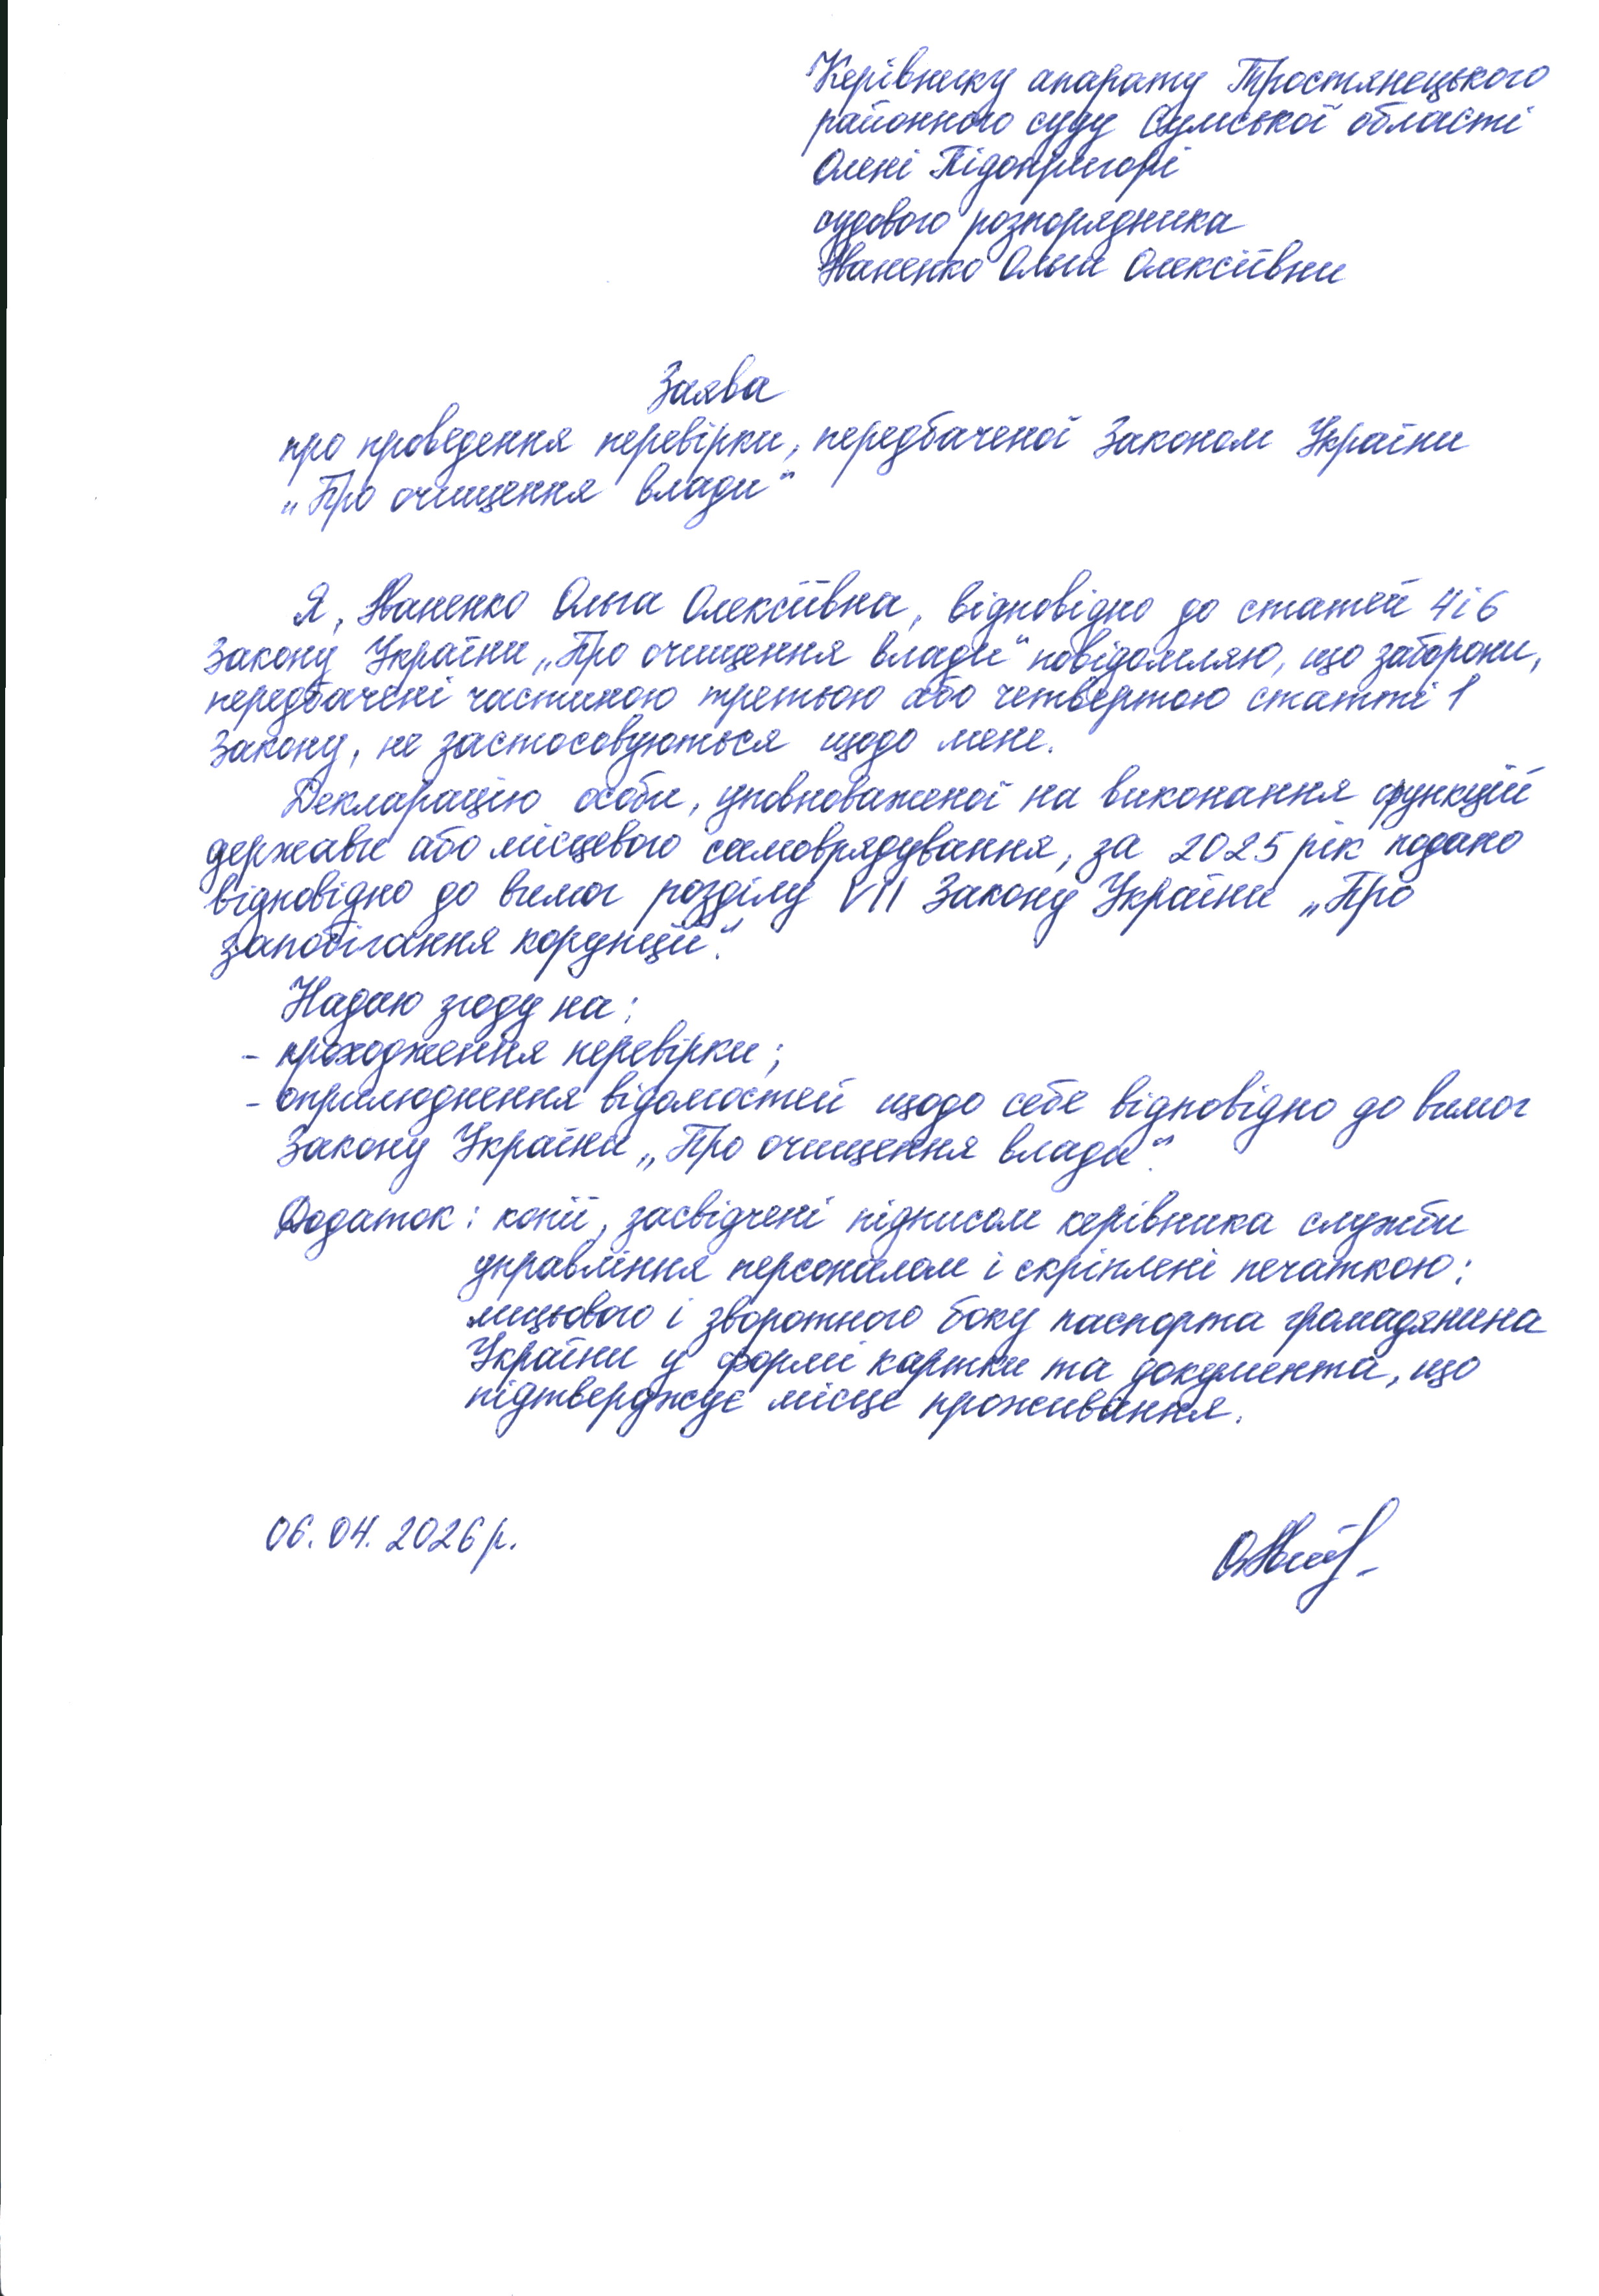 Керівнику апарату Тростянецького
районного суду Сумської області
Олені Підопригорі
судового розпорядника
Іваненко Ольги Олексіївни
Заява
про проведення перевірки, передбаченої Законом України
„Про очищення влади“
Я, Іваненко Ольга Олексіївна, відповідно до статей 4 і 6
Закону України „Про очищення влади“ повідомляю, що заборони,
передбачені частиною третьою або четвертою статті 1
Закону, не застосовуються щодо мене.
Декларацію особи, уповноваженої на виконання функцій
держави або місцевого самоврядування, за 2025 рік подано
відповідно до вимог розділу VII Закону України „Про
запобігання корупції“.
Надаю згоду на:
- проходження перевірки;
- оприлюднення відомостей щодо себе відповідно до вимог
Закону України „Про очищення влади“.
Додаток: копії, засвідчені підписом керівника служби
управління персоналом і скріплені печаткою:
лицьового і зворотного боку паспорта громадянина
України у формі картки та документа, що
підтверджує місце проживання.
06.04.2026 р.